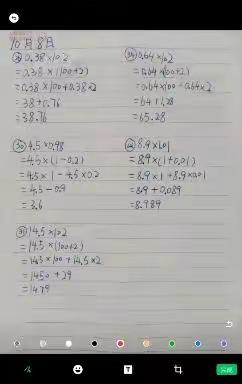 10月8日
0.38×102
=0.38×(100+2)
=0.38×100+0.38×2
=38+0.76
=38.76
0.64×102
=0.64×(100+2)
=0.64×100+0.64×2
=64+1.28
=65.28
4.5×0.98
=4.5×(1-0.2)
=4.5×1-4.5×0.2
=4.5-0.9
=3.6
8.9×1.01
=8.9×(1+0.01)
=8.9×1+8.9×0.01
=8.9+0.089
=8.989
14.5×102
=14.5×(100+2)
=14.5×100+14.5×2
=1450+29
=1479
T
完成